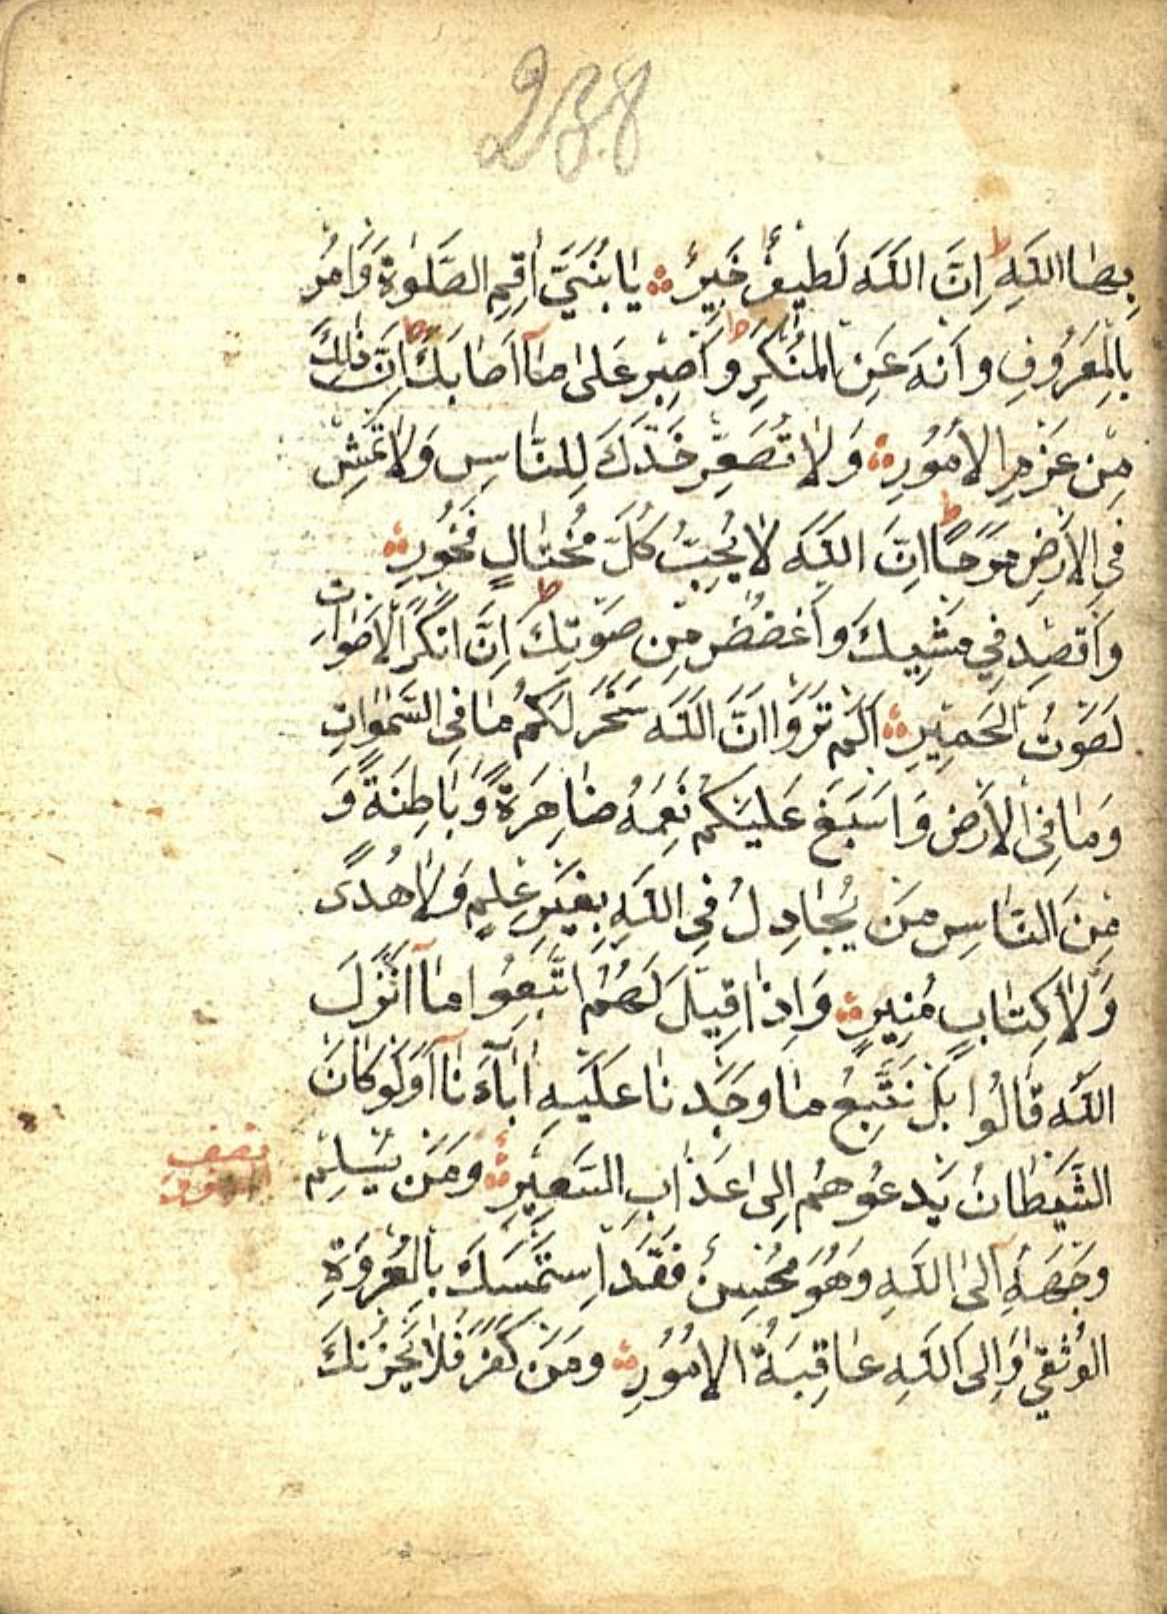 238
بِهَا اللَّهُ ط اِنَّ اللَّهَ لَطِيفٌ خَبِيرٌ يَا بُنَيَّ اَقِمِ الصَّلٰوةَ وَامُرْ
بِالْمَعْرُوفِ وَانْهَ عَنِ الْمُنْكَرِ ط وَاصْبِرْ عَلٰى مَآ اَصَابَكَ ط اِنَّ ذٰلِكَ
مِنْ عَزْمِ الْاُمُورِ وَلَا تُصَعِّرْ خَدَّكَ لِلنَّاسِ وَلَا تَمْشِ
فِي الْاَرْضِ مَرَحًا ط اِنَّ اللَّهَ لَا يُحِبُّ كُلَّ مُخْتَالٍ فَخُورٍ
وَاقْصِدْ فِي مَشْيِكَ وَاغْضُضْ مِنْ صَوْتِكَ ط اِنَّ اَنْكَرَ الْاَصْوَاتِ
لَصَوْتُ الْحَمِيرِ اَلَمْ تَرَوْا اَنَّ اللَّهَ سَخَّرَ لَكُمْ مَا فِى السَّمٰوَاتِ
وَمَا فِى الْاَرْضِ وَاَسْبَغَ عَلَيْكُمْ نِعَمَهُ ضَاهِرَةً وَبَاطِنَةً وَ
مِنَ النَّاسِ مَنْ يُجَادِلُ فِى اللَّهِ بِغَيْرِ عِلْمٍ وَلَا هُدًى
وَلَا كِتَابٍ مُنِيرٍ وَاِذَا قِيلَ لَهُمُ اتَّبِعُوا مَآ اَنْزَلَ
اللَّهُ قَالُوا بَلْ نَتَّبِعُ مَا وَجَدْنَا عَلَيْهِ اٰبَآءَنَآ اَوَلَوْ كَانَ
الشَّيْطَانُ يَدْعُوهُمْ اِلٰى عَذَابِ السَّعِيرِ وَمَنْ يُسْلِمْ
نصف
وَجْهَهُ اِلَى اللَّهِ وَهُوَ مُحْسِنٌ فَقَدِ اسْتَمْسَكَ بِالْعُرْوَةِ
الْوُثْقٰى وَاِلَى اللَّهِ عَاقِبَةُ الْاُمُورِ وَمَنْ كَفَرَ فَلَا يَحْزُنْكَ